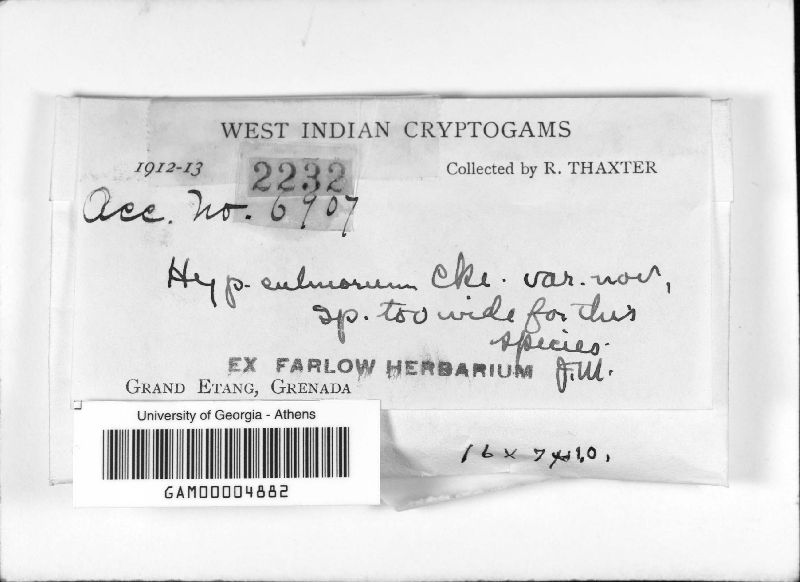 WEST INDIAN CRYPTOGAMS
1912-13
2232
Collected by R. THAXTER
Acc. No. 6907
Hyp. culmorum Cke. var. nov,
sp. too wide for this
species.
J.M.
EX FARLOW HERBARIUM
GRAND ETANG, GRENADA
University of Georgia - Athens
GAM00004882
16 x 7